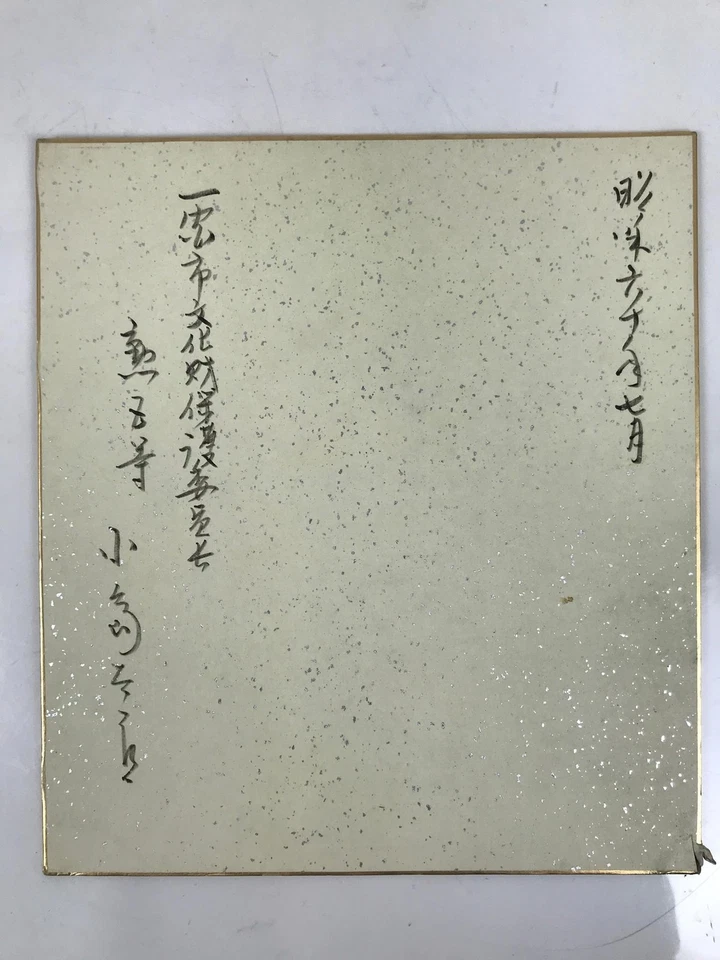 昭和六十年七月
一宮市文化財保護委員長
勲五等
小島